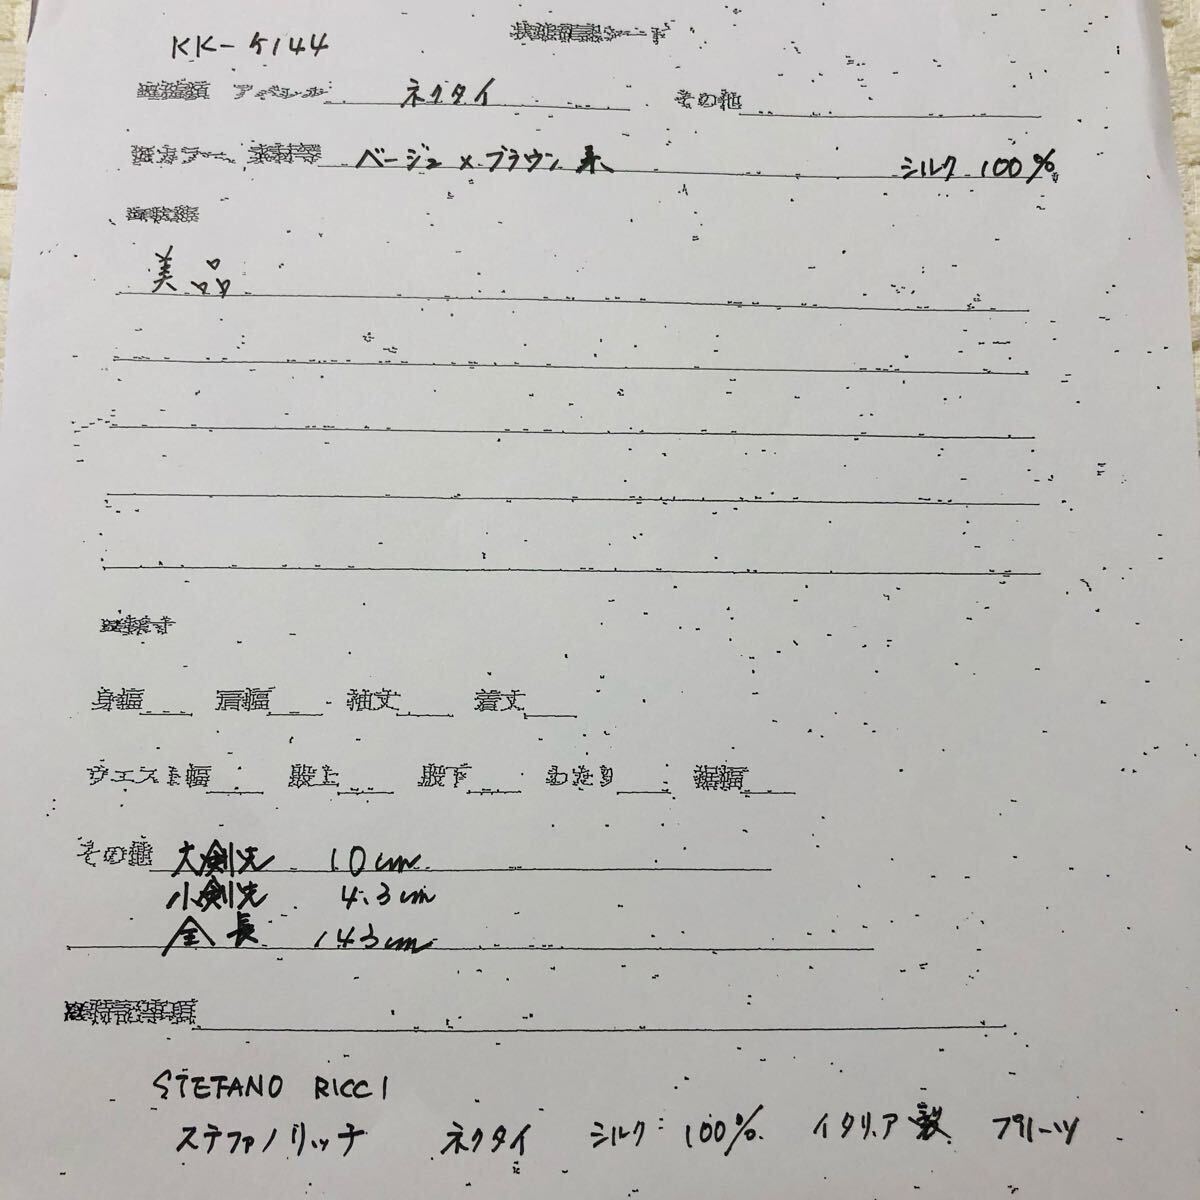 状態確認シート
KK-ケ144
アパレル ネクタイ その他
カラー、素材等 ベージュ×ブラウン系 シルク 100%
状態
美品
採寸
身幅 肩幅 袖丈 着丈
ウエスト幅 股上 股下 わたり 裾幅
その他 大剣先 10cm
小剣先 4.3cm
全長 143cm
特記事項
STEFANO RICCI
ステファノリッチ ネクタイ シルク:100% イタリア製 プリーツ